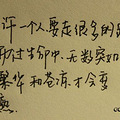 许一个人要走很多的路
过生命中无数突如
繁华和苍凉才会变